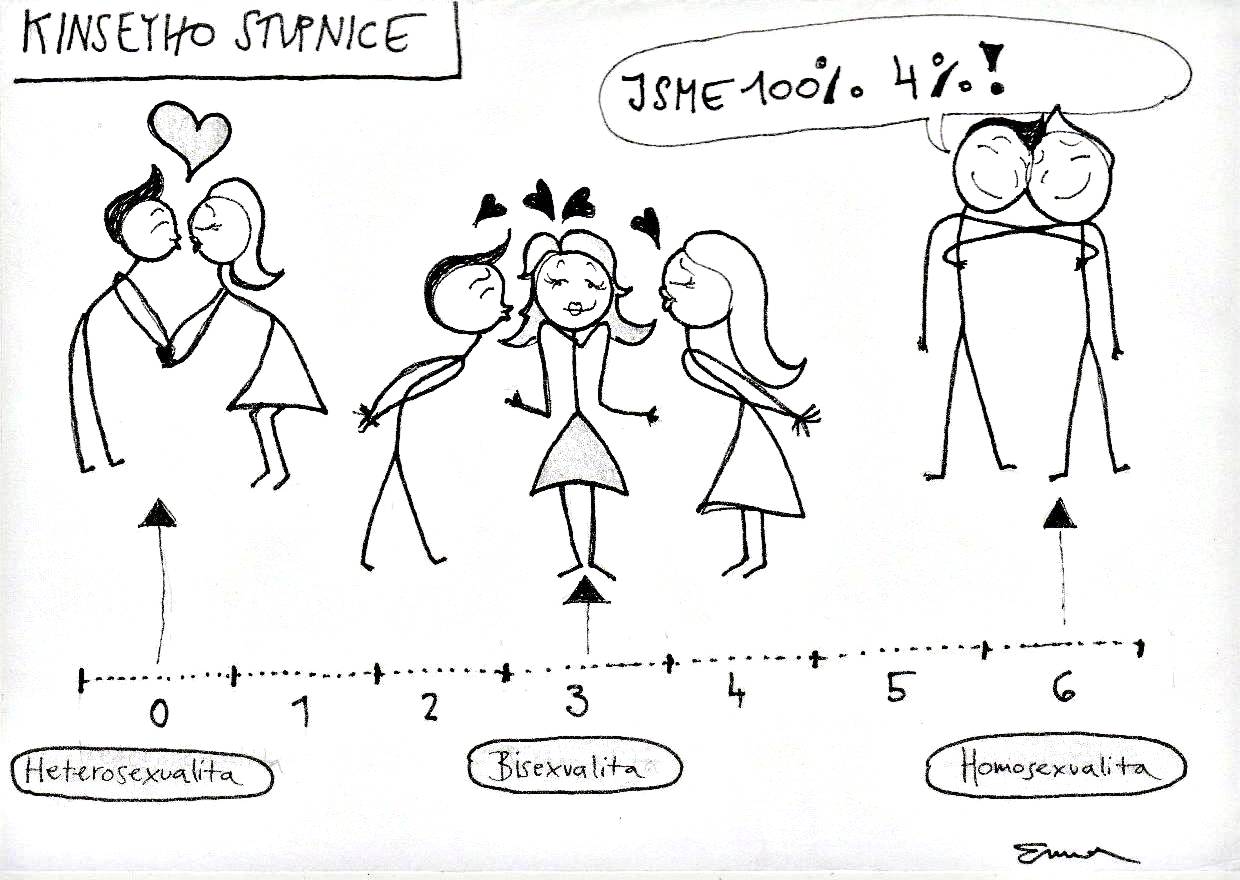 KINSEYHO STUPNICE
JSME 100% 4%!
0 1 2 3 4 5 6
Heterosexualita Bisexualita Homosexualita